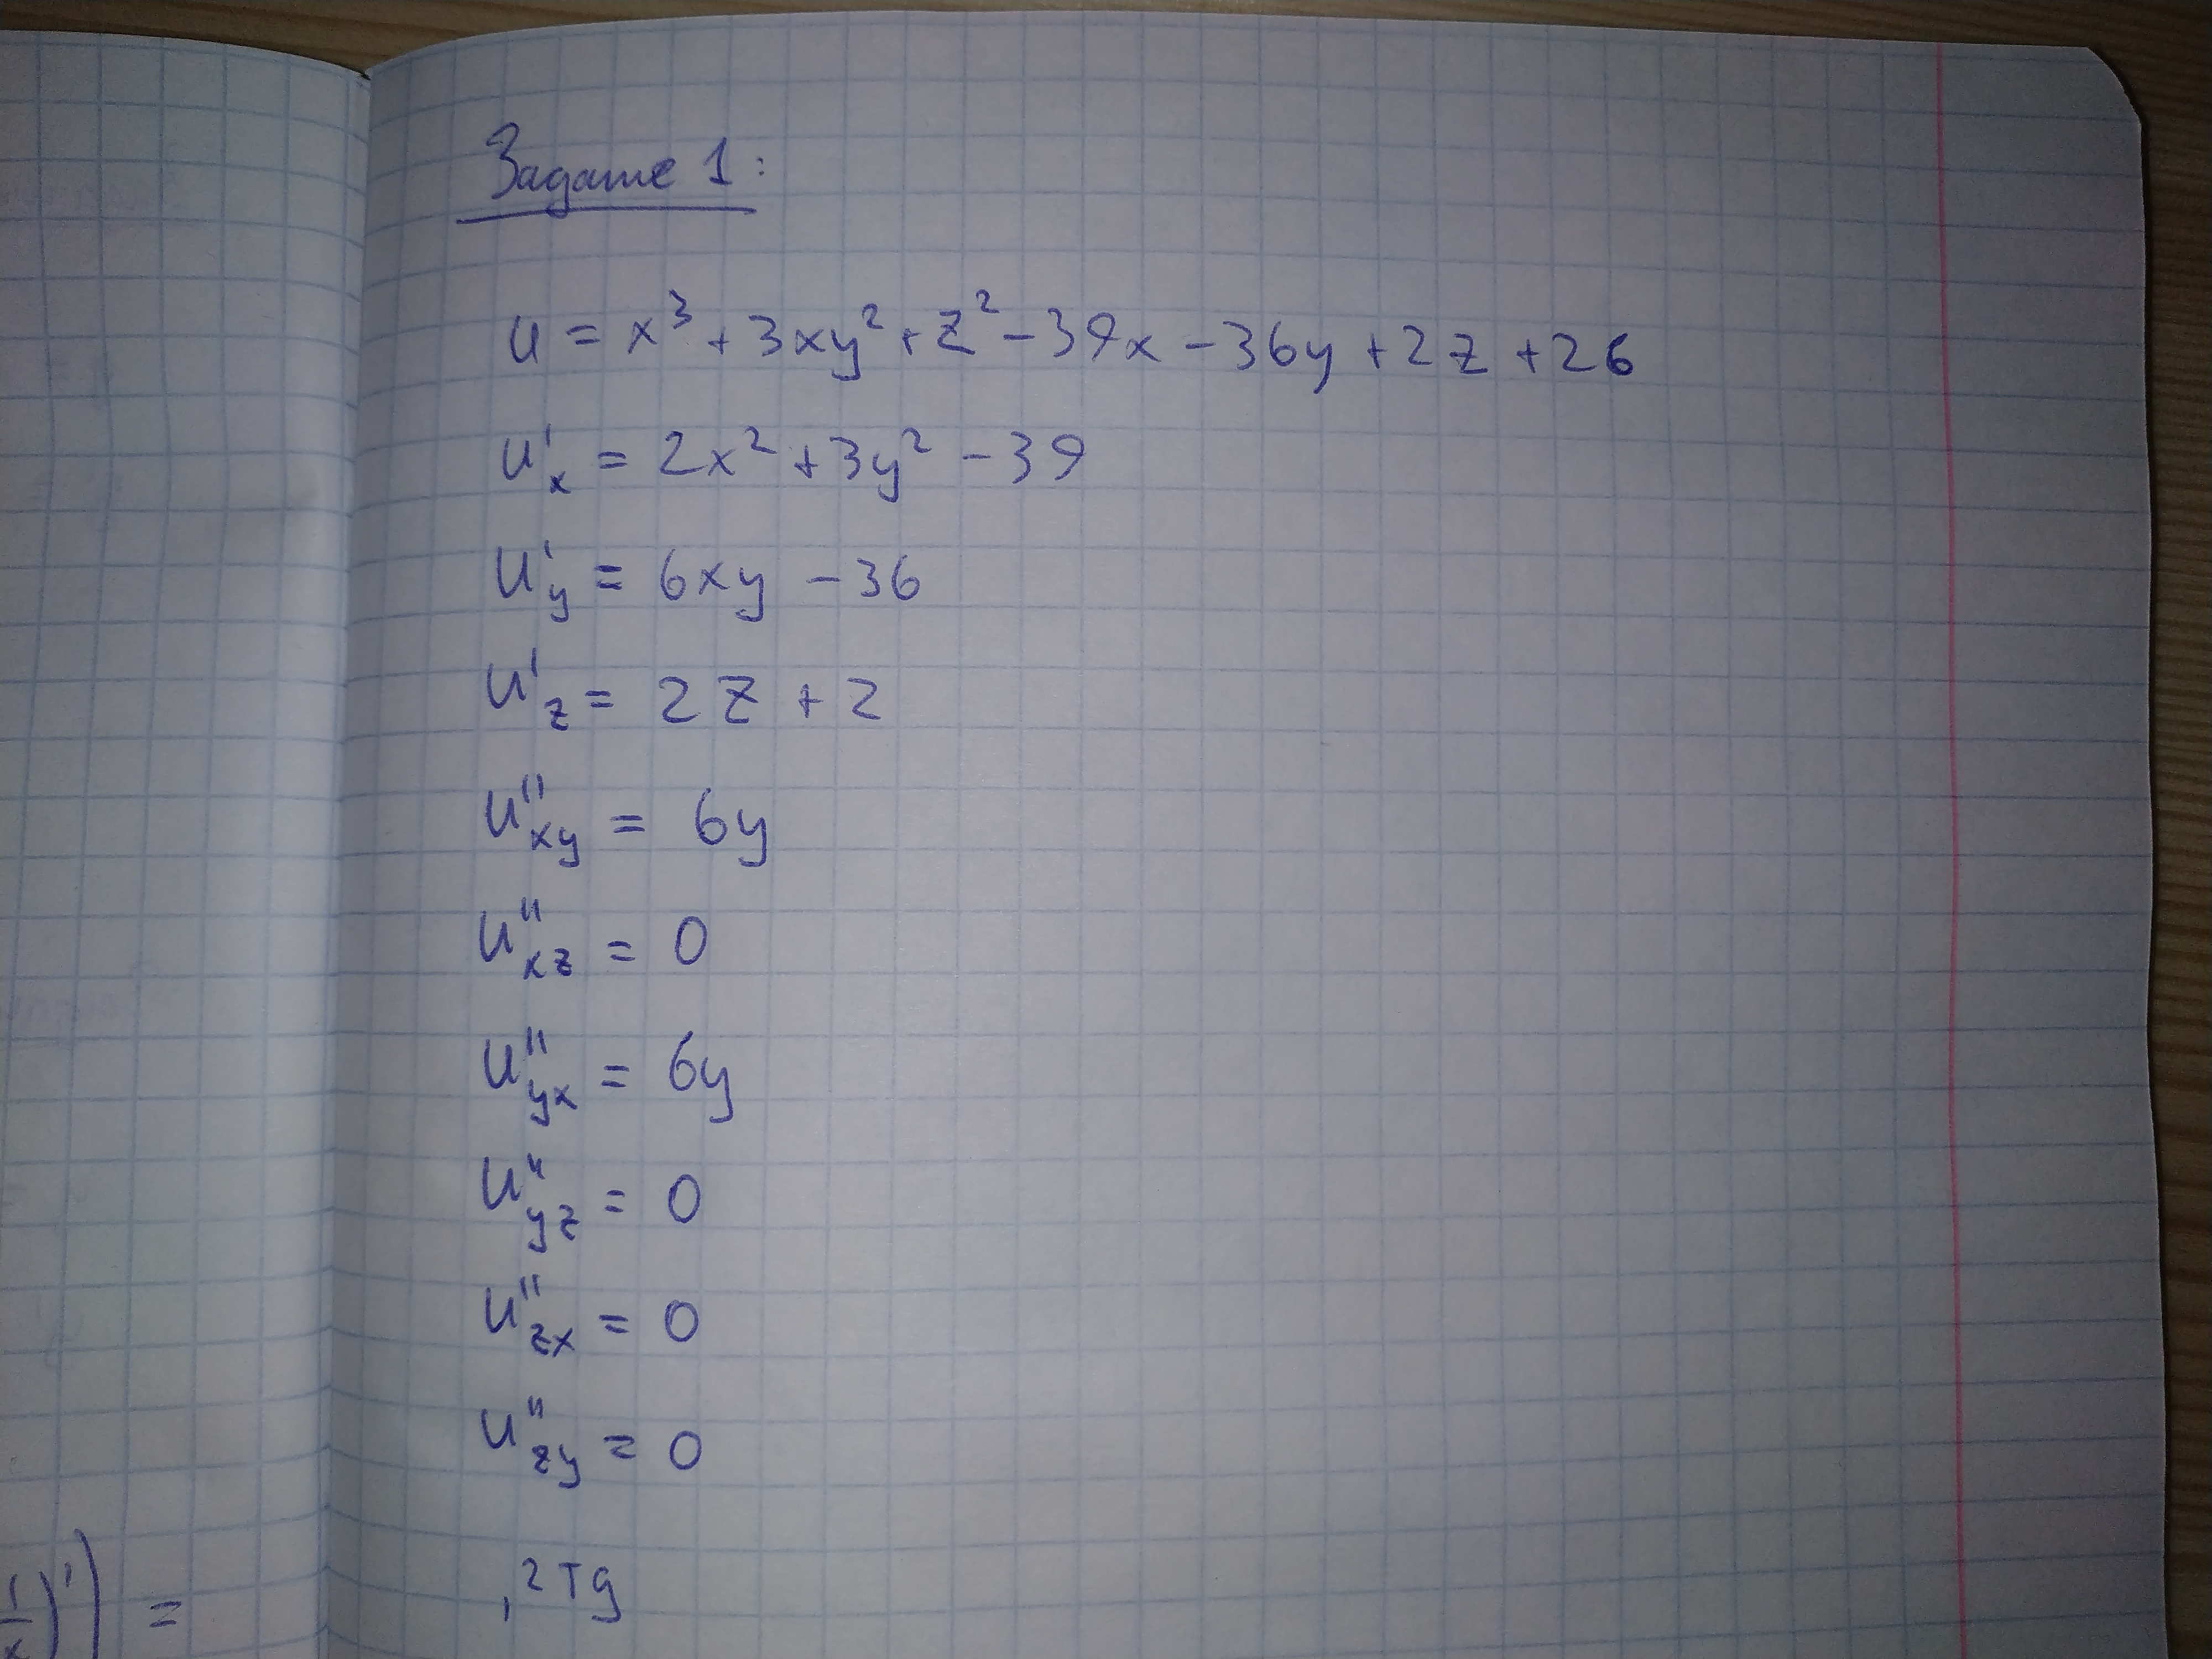 Задание 1:
u = x³ + 3xy² + z² - 39x - 36y + 2z + 26
u'ₓ = 2x² + 3y² - 39
u'_y = 6xy - 36
u'_z = 2z + 2
u''_xy = 6y
u''_xz = 0
u''_yx = 6y
u''_yz = 0
u''_zx = 0
u''_zy = 0
, 2 тg
1/x)')=